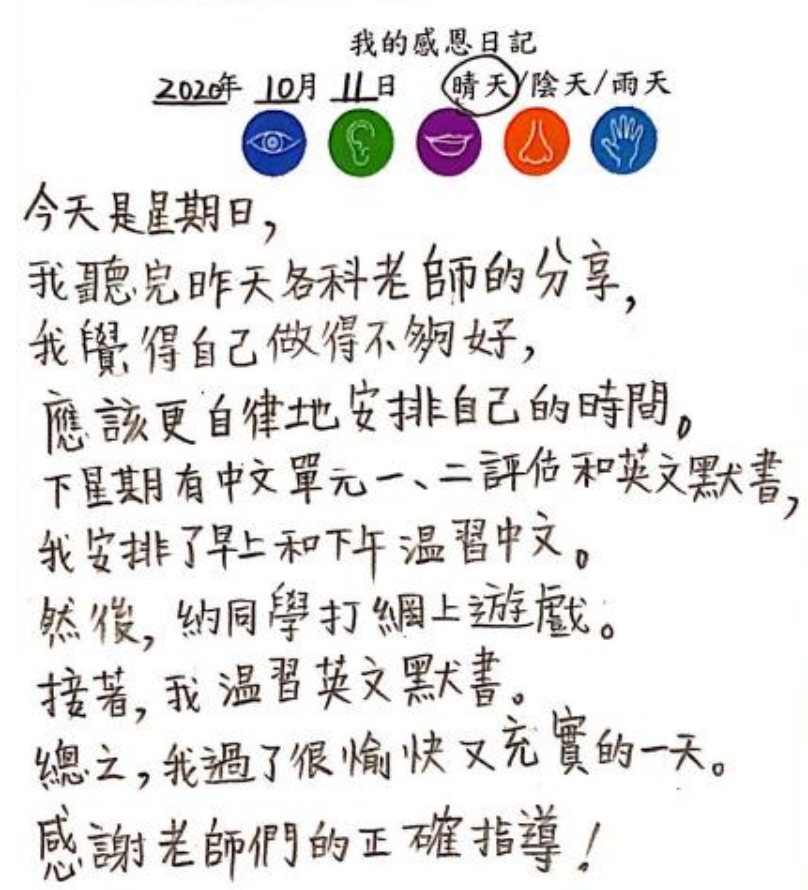 我的感恩日記
2020年 10月 11日 晴天/陰天/雨天
今天是星期日，
我聽完昨天各科老師的分享，
我覺得自己做得不夠好，
應該更自律地安排自己的時間。
下星期有中文單元一、二評估和英文默書，
我安排了早上和下午温習中文。
然後，約同學打網上遊戲。
接著，我温習英文默書。
總之，我過了很愉快又充實的一天。
感謝老師們的正確指導！